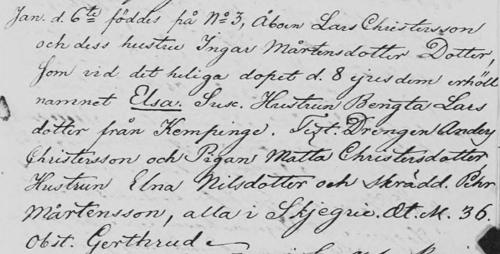 Jan. d. 6te föddes på No 3, Åboen Lars Christersson
och dess hustru Ingar Mårtensdotter Dotter,
som vid det heliga dopet d. 8 ejusdem erhöll
namnet Elsa. Susc. Hustrun Bengta Lars
dotter från Kempinge. Test: Drengen Anders
Christersson och Pigan Matta Christersdotter
Hustrun Elna Nilsdotter och skrädd. Pehr
Mårtensson, alla i Skjegrie. Æt. M. 36.
Obst. Gerthrud